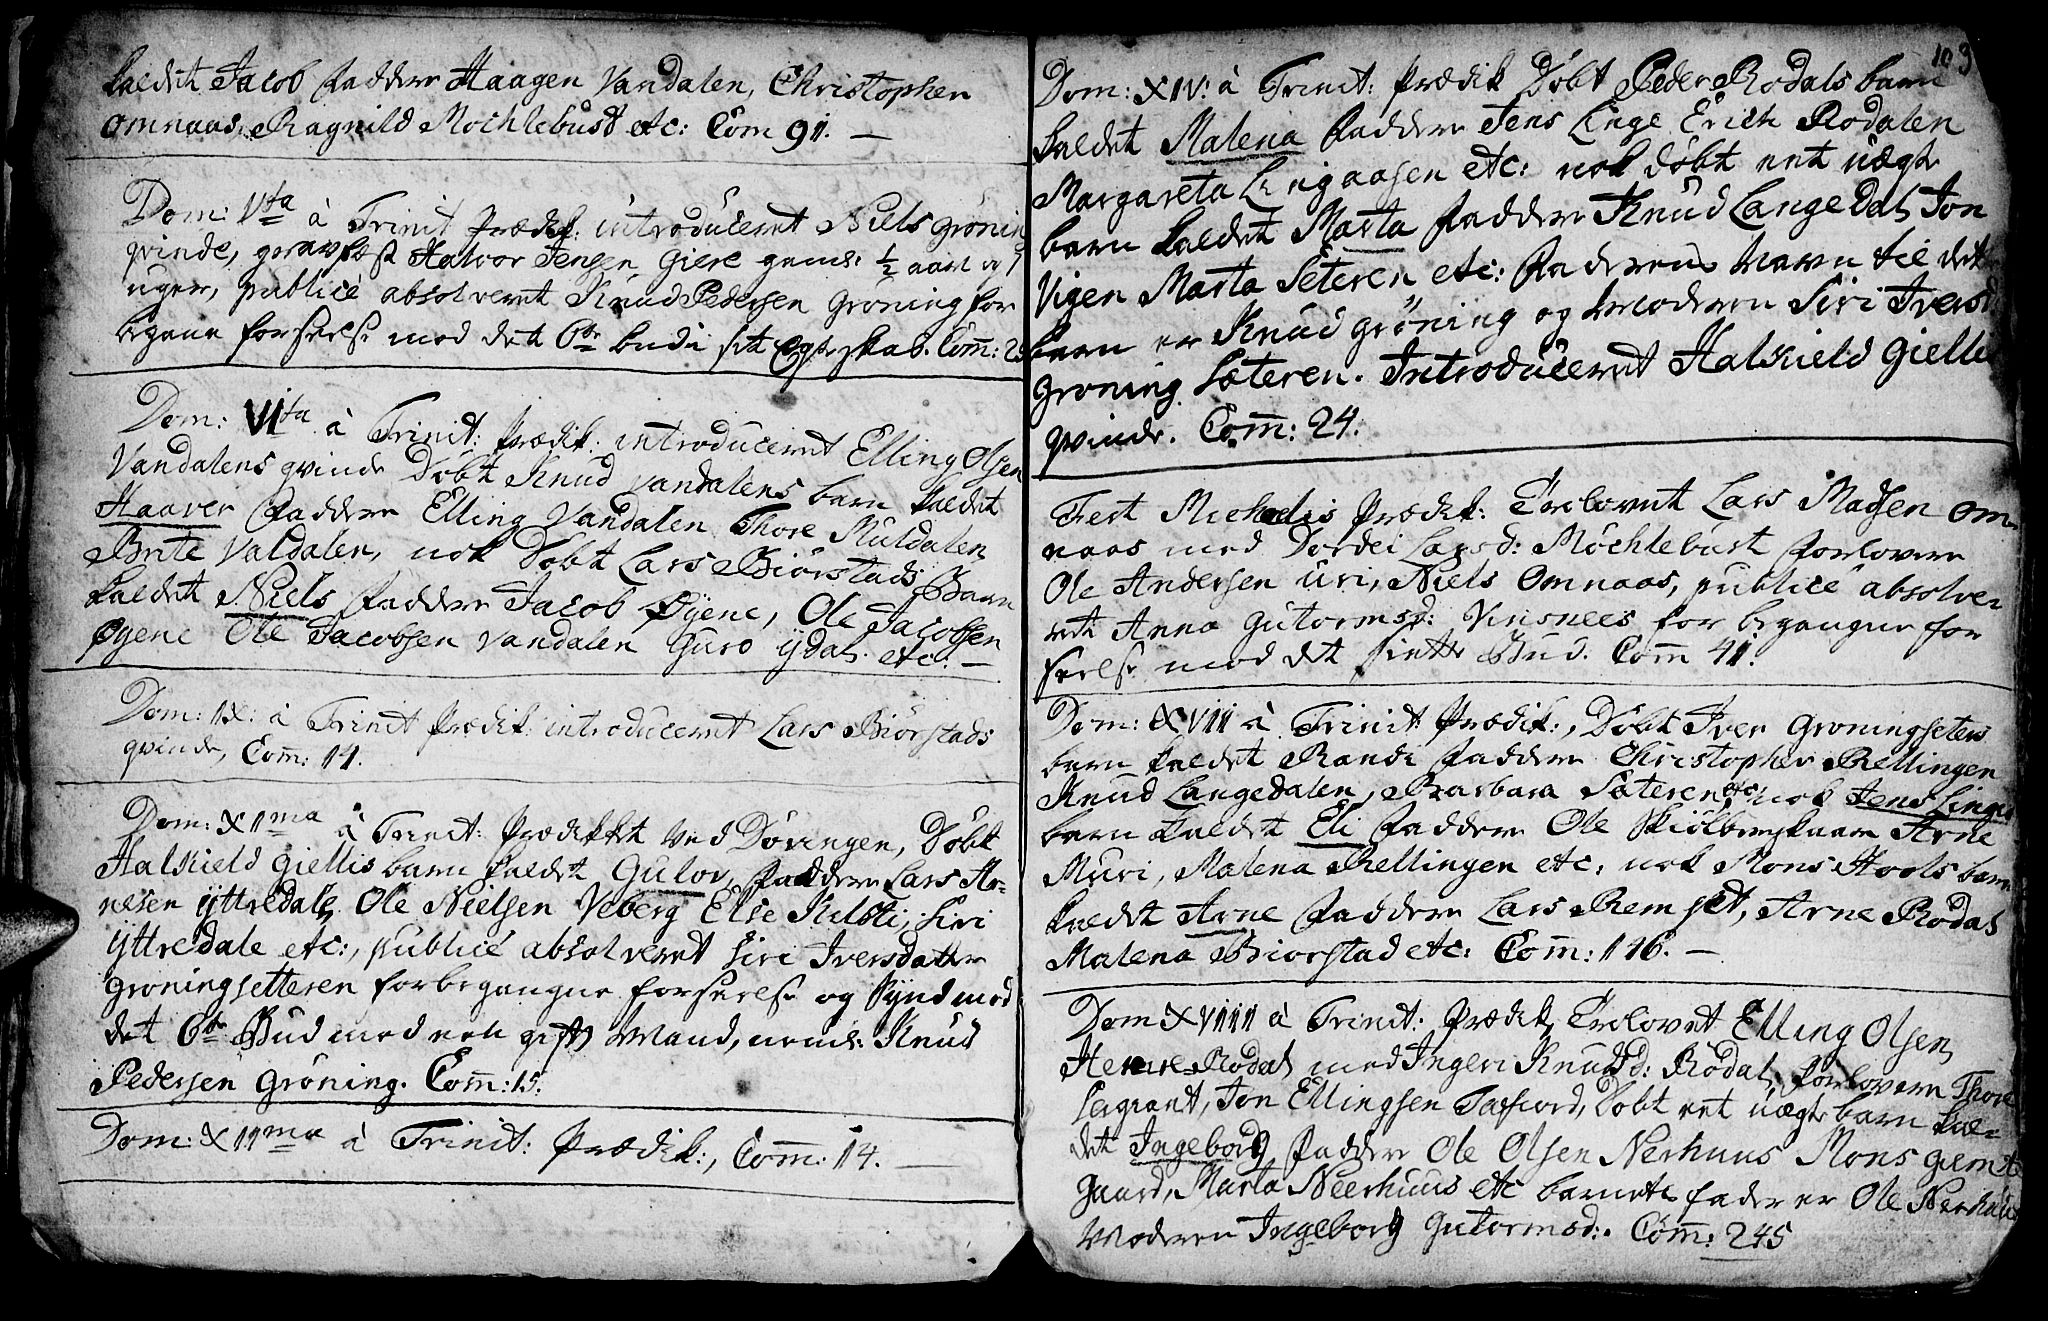 kaldet Jacob faddere Haagen Vandalen, Christopher
omnaas, Ragnild Mochlebust etc: Com 91. —
Dom: Vta à Trinit Prædik: introduceret Niels Grönin
qvinde, Halvor Jensen Giere gams: ½ aar og 7
uger, publicè absolveret Knud Pedersen Gröning for
begaaen forseelse mod det 6te bud i sit Egteskab. Com̅: 2
Dom: VIta à Trinit: Prædik: introduceret Elling Olsen
Vandalens qvinde Döbt Knud Vandalens barn kaldet
Haaver faddere Elling Vandalen Thore Muldalen
Brite Valdalen, nok Döbt Lars Biörstads Barn
kaldet Niels faddere Jacob Öyene, Ole Jacobsen
Öyene Ole Jacobsen Vandalen Guro ÿdal etc: —
Dom: IX: à Trinit Prædik: introduceret Lars Biörstads
qvinde, Com̅: 14.
Dom: XIma à Trinit: Prædikket ved Dövingen, Döbt
Halskield Giellis barn kaldet Gulov, faddere Lars Ar-
nesen ÿttredals Ole Nielsen Veberg Else Kilsti, Siri
ÿttredale etc:, publicè absolveret Siri Iversdatter
Groningsetteren for begangne forseelse og Synd mod
det 6te Bud med en gift Mand, neml: Knud
Pedersen Gröning. Com̅: 15.
Dom: XIIma à Trinit: Prædik:, Com̅: 14. —
103
Dom: XIV: à Trinit: Prædik Döbt Peder Rodals barn
kaldet Malena faddere Jens Linge Erich Rodalen
Margareta Lingaasen etc: nok döbt eet uægte
barn kaldet Marta faddere Knud Langedal Jon
Vigen Marta Seteren etc: faderens Navn til dette
barn er Knud gröning og Moderen Siri Iversd
groning Sæteren. Introduceret Halskield Gielles
qvinde. Com̅: 24.
Fest Michaelis Prædik: Trolovet Lars Madsen om-
naas med Dordei Larsd: Möchlebust forlovere
Ole Andersen Uri, Niels Omnaas, publicè absolve-
ret Anna Gutormsd: Vinsnees for begangne for
seelse mod det siette Bud. Com̅ 41.
Dom: XVII à Trinit: Prædik:, Döbt Iver Groningseters
barn kaldet Randi faddere Christopher Rellingen
Knud Langedalen, Barbara Sæteren etc: nok Jens Linges
barn kaldet Eli faddere Ole Skiölbergskaar Arne
Muri, Malena Rellingen etc: nok Mons Hools barn
kaldet Arne faddere Lars Remset, Arne Rodal
Malena Biorstad etc: Com̅: 116. —
Dom XVIIII à Trinit: Prædik, Trolovet Elling Olsen
Herre Rodal med Ingeri Knudsd: Rödal, forlovere Thore
Sergeant, Jon Ellingsen Tafiord, Döbt eet uægte barn kal-
det Ingeborg faddere Ole Olsen Nerhuus Mons giemte
gaard, Marta Neerhuus etc barnets fader er Ole Nerhuus
Moderen Ingeborg Gutormsd:. Com̅: 245